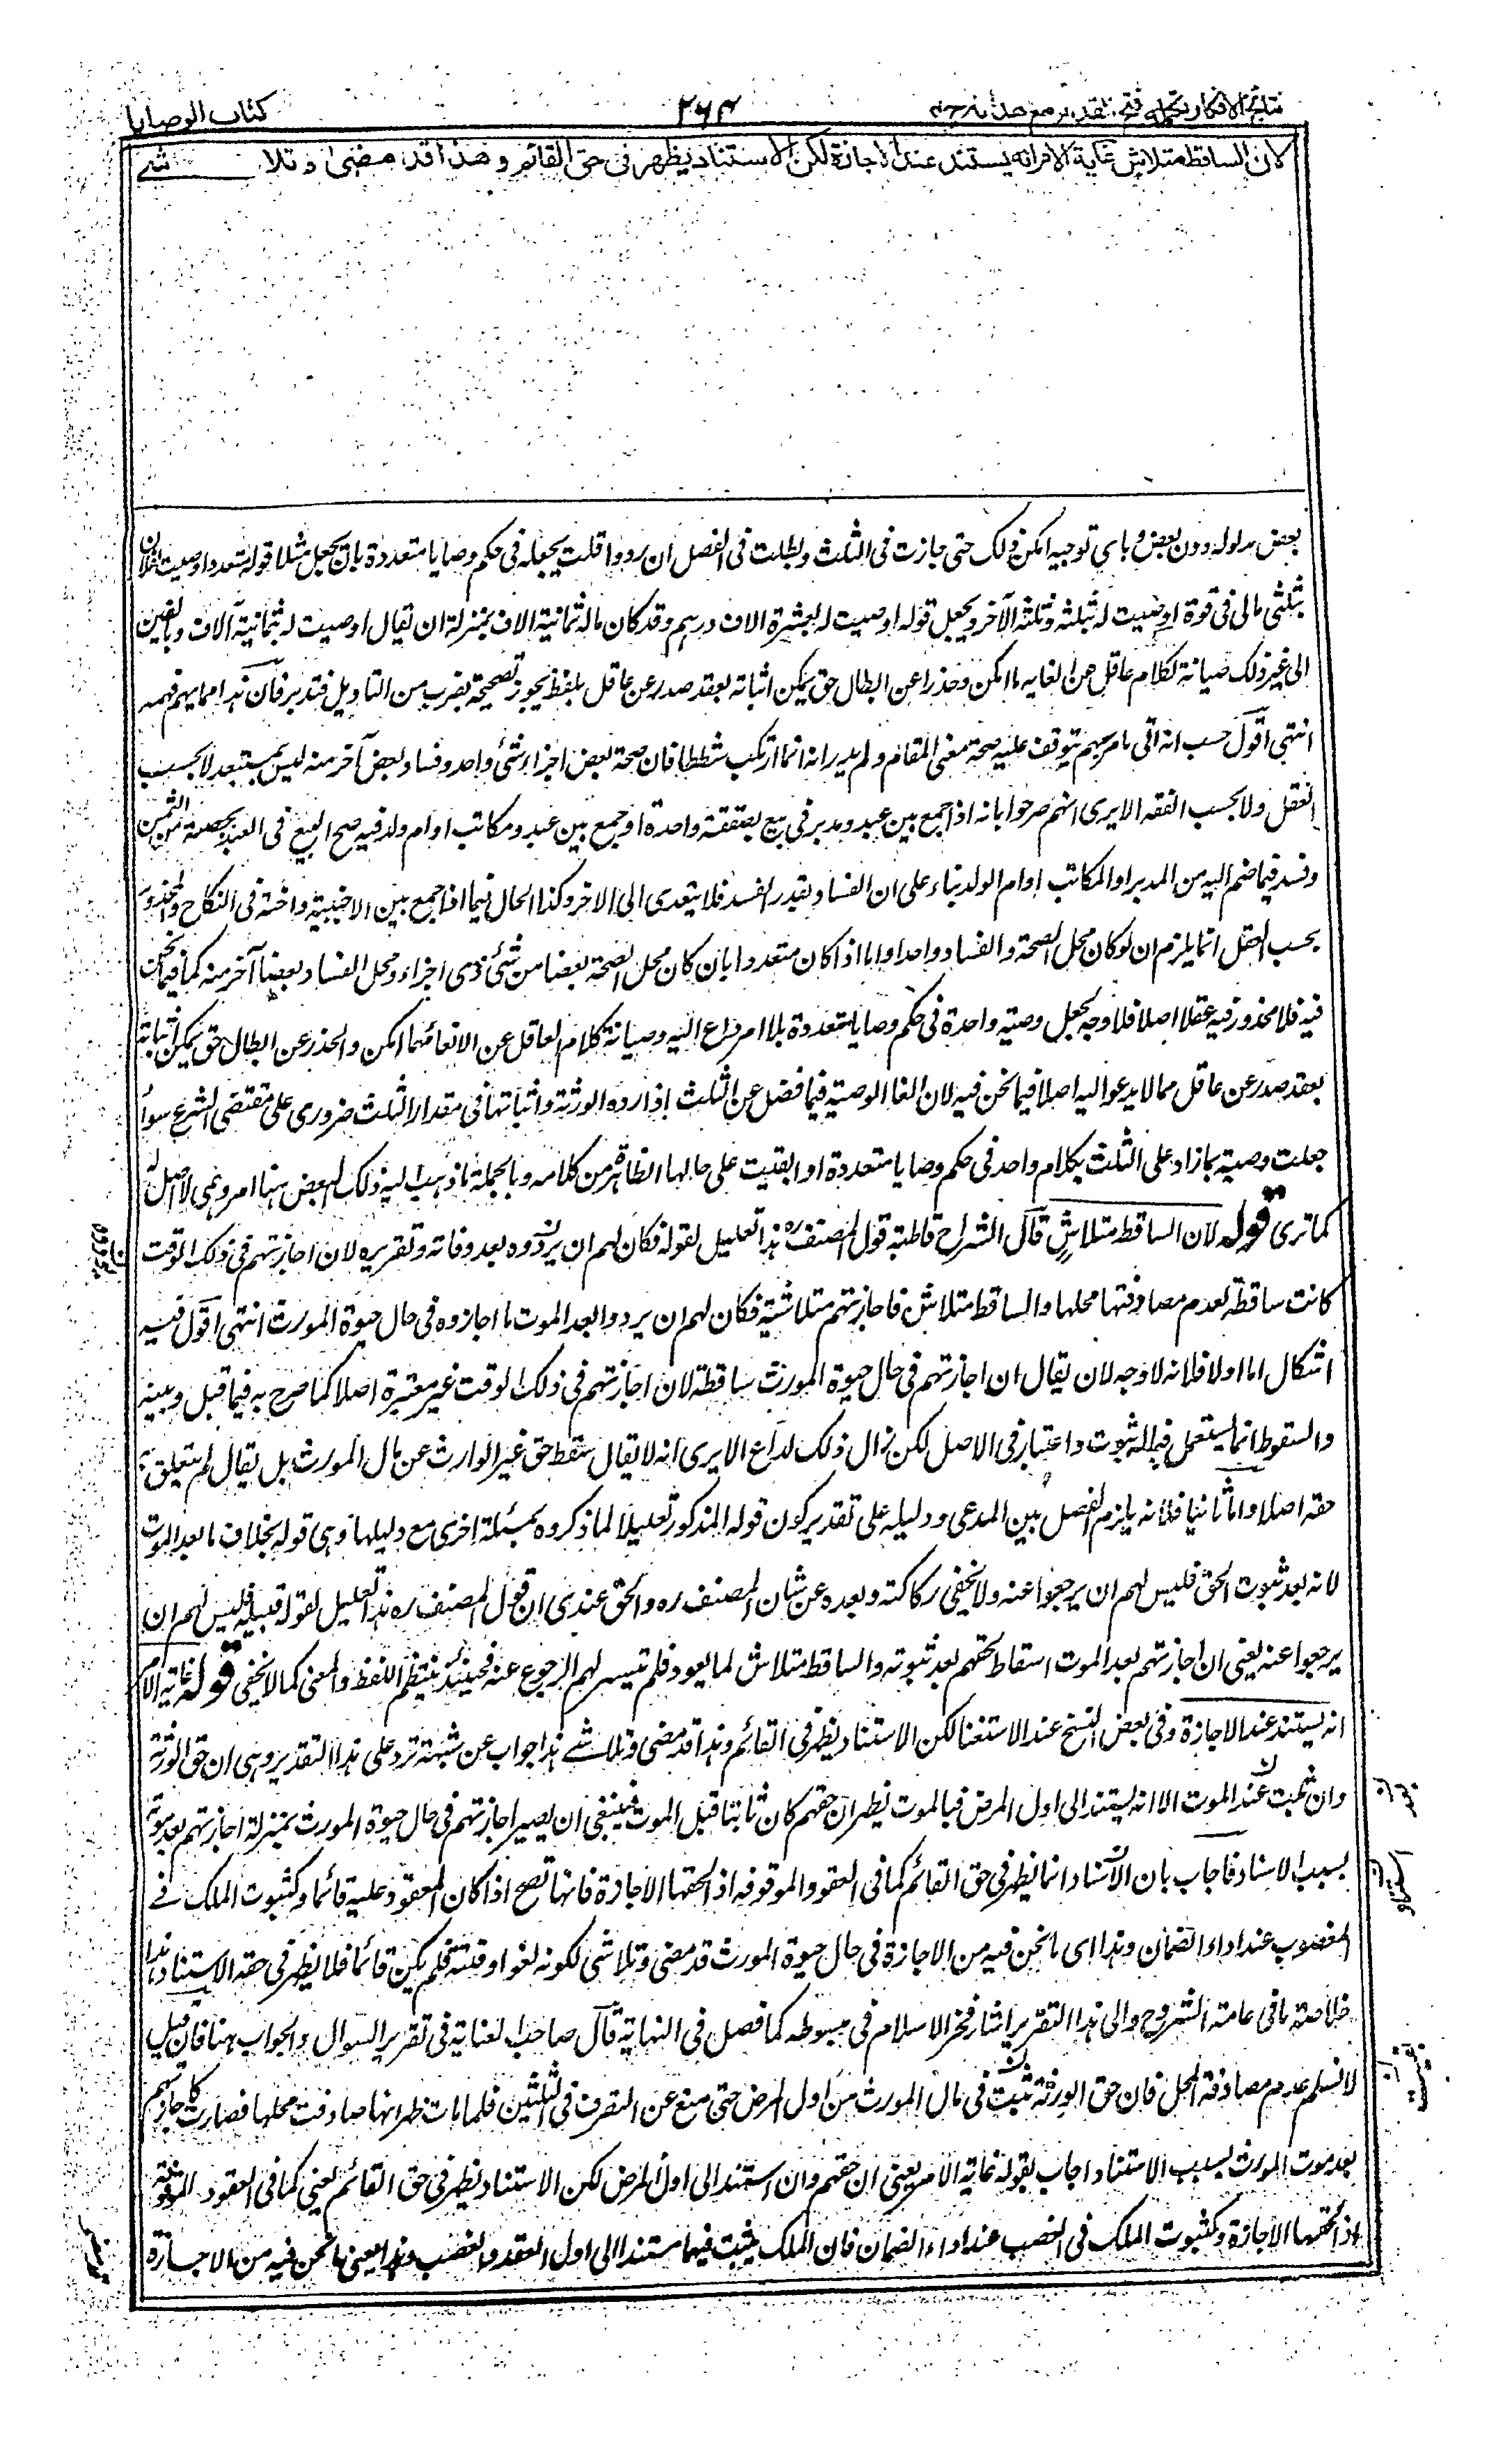 نتائج الافكار تكملہ فتح القدیر مع هدایہ ج ٨
٢٦٣
كتاب الوصايا
لان الساقط متلاش غاية الامر انه يستند عند الاجازة لكن الاستناد يظهر فى حق القائم وهذا قد مضى وتلا شے
بعض مدلوله دون بعض وباي توجيه امكن ذلك حتى جازت فى الثلث وبطلت فى الفصل ان ردوا قلت يجعله فى حكم وصايا متعددة بان يجعل مثلا قوله اوصيت لفلان
بثلثى مالى فى قوة اوصيت له بثلثه وثلثه الآخر ويجعل قوله اوصيت له بعشرة الاف درهم وقد كان ماله ثمانية الاف بمنزلة ان يقال اوصيت له بثمانية آلاف وبالفين
الى غير ذلك صيانة لكلام عاقل عن الغايه ما امكن وحذرا عن ابطال حق يمكن اثباته بعقد صدر عن عاقل بلفظ يجوز تصحيحه بضرب من التاويل فتدبر فان هذا مما يهم فهمه
انتهى اقول حسب انه اتى بامر مهم يتوقف عليه صحة معنى المقام ولم يدر انه انما ارتكب شططا فان صحة بعض اجزاء شئ واحد وفساد بعض آخر منه ليس بمستبعد لا بحسب
العقل ولا بحسب الفقه الا يرى انهم صرحوا بانه اذا جمع بين عبد ومدبر فى بيع بصفقة واحدة او جمع بين عبد ومكاتب او ام ولد فيه صح البيع فى العبد بحصته من الثمن
وفسد فيما ضم اليه من المدبر او المكاتب او ام الولد بناء على ان الفساد بقدر المفسد فلا يتعدى الى الآخر وكذا الحال فيما اذا جمع بين الاجنبية واخته فى النكاح والمحذور
بحسب العقل انما يلزم ان لو كان محل الصحة والفساد واحدا واما اذا كان متعددا بان كان محل الصحة بعضا من شئ ذى اجزاء ومحل الفساد بعضا آخر منه كما فيما نحن
فيه فلا محذور فيه عقلا اصلا فلا وجه لجعل وصية واحدة فى حكم وصايا متعددة بلا امر داع اليه وصيانة كلام العاقل عن الالغاء مهما امكن والحذر عن ابطال حق يمكن اثباته
بعقد صدر عن عاقل مما لا يدعو اليه اصلا فيما نحن فيه لان الغا الوصية فيما فضل عن الثلث اذا رده الورثة واثباتها فى مقدار الثلث ضرورى على مقتضى الشرع سواء
جعلت وصية بما زاد على الثلث بكلام واحد فى حكم وصايا متعددة او ابقيت على حالها الظاهرة من كلامه وبالجملة ما ذهب اليه ذلك البعض هنا امر وهمى لا اصل له
كما ترى قوله لان الساقط متلاش قال الشراح قاطبة قول المصنف ره هذا تعليل لقوله فكان لهم ان يردوه بعد وفاته وتقريره لان اجازتهم فى ذلك الوقت
كانت ساقطة لعدم مصادفتها محلها والساقط متلاش فاجازتهم متلاشية فكان لهم ان يردوا بعد الموت ما اجازوه فى حال حيوة المورث انتهى اقول فيه
اشكال اما اولا فلانه لا وجه لان يقال ان اجازتهم فى حال حيوة المورث ساقطة لان اجازتهم فى ذلك الوقت غير معتبرة اصلا كما صرح به فيما قبل وبينه
والسقوط انما يستعمل فيما له ثبوت واعتبار فى الاصل لكن زال ذلك لداع الا يرى انه لا يقال سقط حق غير الوارث عن مال المورث بل يقال لم يتعلق به
حقه اصلا واما ثانيا فلانه يلزم الفصل بين المدعى ودليله على تقدير كون قوله المذكور تعليلا لما ذكروه بمسئلة اخرى مع دليلها وهى قوله بخلاف ما بعد الموت
لانه بعد ثبوت الحق فليس لهم ان يرجعوا عنه ولا يخفى ركاكته وبعده عن شان المصنف ره والحق عندى ان قول المصنف ره هذا تعليل لقوله قبيله فليس لهم ان
يرجعوا عنه يعنى ان اجازتهم بعد الموت اسقاط لحقهم بعد ثبوته والساقط متلاش لما يعود فلم تيسر لهم الرجوع عنه فحينئذ ينتظم اللفظ والمعنى كما لا يخفى قوله غاية الامر
انه يستند عند الاجازة وفى بعض النسخ عند الاستغنا لكن الاستناد يظهر فى القائم وهذا قد مضى وتلاشے هذا جواب عن شبهة ترد على هذا التقدير وهى ان حق الورثة
وان ثبت عند الموت الا انه يستند الى اول المرض فبالموت يظهر ان حقهم كان ثابتا قبل الموت فينبغى ان يصير اجازتهم فى حال حيوة المورث بمنزلة اجازتهم بعد موته
بسبب الاسناد فاجاب بان الاسناد انما يظهر فى حق القائم كما فى العقود الموقوفه اذا لحقها الاجازة فانها تصح اذا كان المعقود عليه قائما وكثبوت الملك فے
المغصوب عند اداء الضمان وهذا اى ما نحن فيه من الاجازة فى حال حيوة المورث قد مضى وتلاشى لكونه لغوا وقته فلم يكن قائما فلا يظهر فى حقه الاستناد هذا
خلاصة ما فى عامة الشروح والى هذا التقرير اشار فخر الاسلام فى مبسوطه كما فصل فى النهاية قال صاحب العناية فى تقرير السوال والجواب هنا فان قيل
لا نسلم عدم مصادفة المحل فان حق الورثة ثبت فى مال المورث من اول المرض حتى منع عن التصرف فى الثلثين فلما مات ظهر انها صادفت محلها فصارت كاجازتهم
بعد موت المورث بسبب الاستناد اجاب بقوله غاية الامر يعنى ان حقهم وان استند الى اول المرض لكن الاستناد يظهر فى حق القائم يعنى كما فى العقود الموقوفة
اذا لحقها الاجازة وكثبوت الملك فى الغصب عند اداء الضمان فان الملك يثبت فيهما مستندا الى اول العقد والغصب وهذا يعنى ما نحن فيه من الاجازة